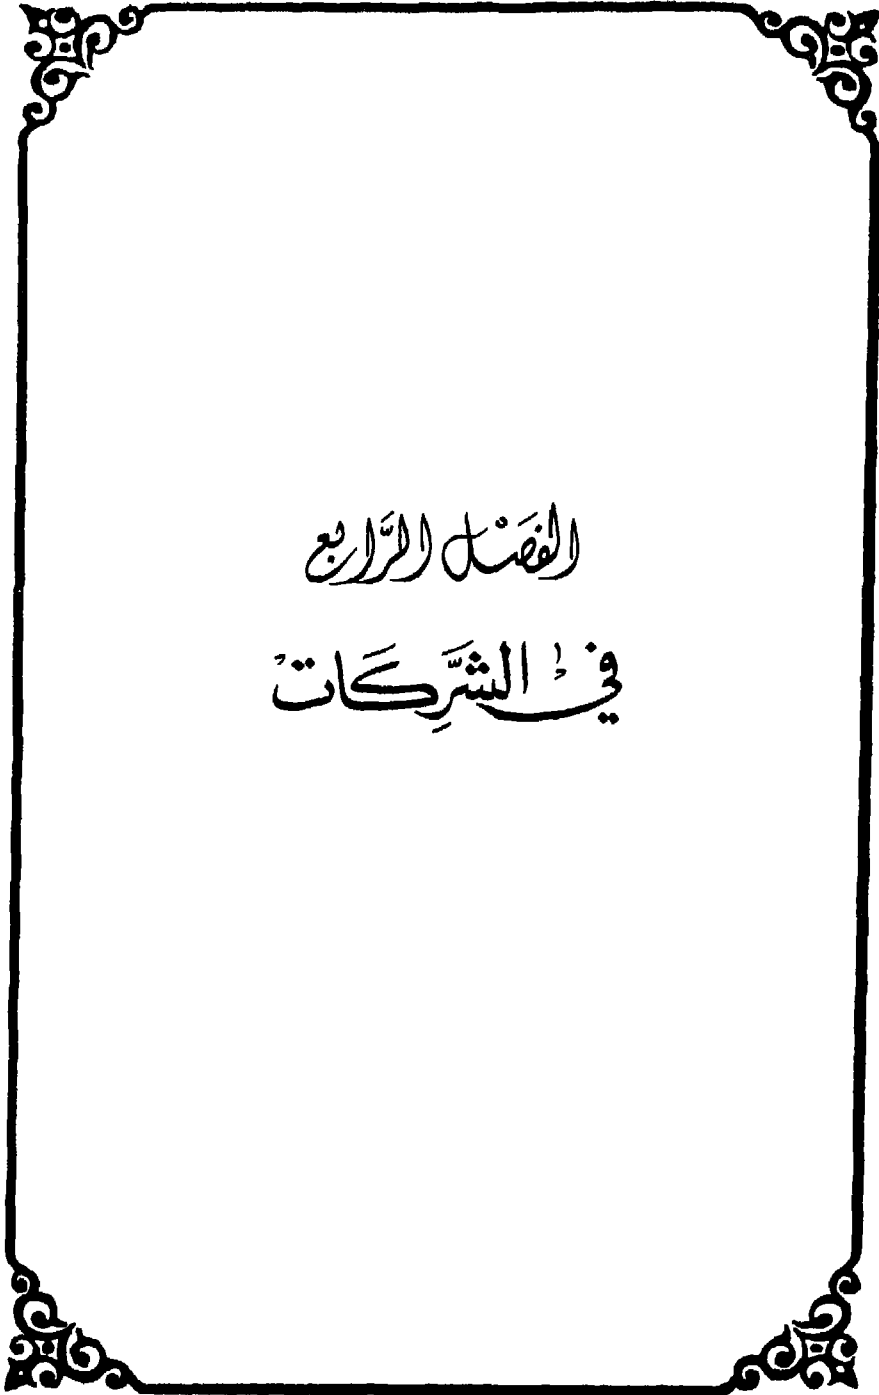 الفَصْل الرَّابع
في الشَّرِكَات